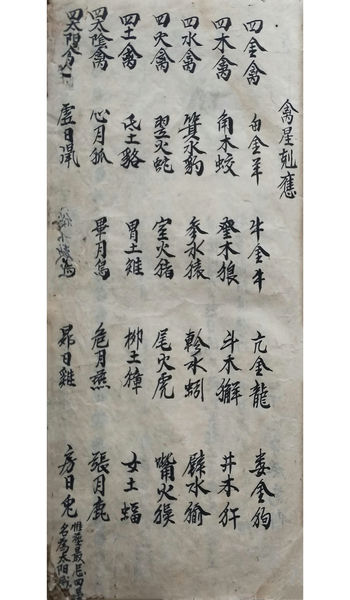 禽星剋應
四金禽 金羊 牛金牛 亢金龍 婁金狗
四木禽 角木蛟 奎木狼 斗木獬 井木犴
四水禽 箕水豹 参水猿 軫水蚓 壁水㺄
四火禽 翌火蛇 室火猪 尾火虎 嘴火猴
四土禽 氐土貉 胃土雉 柳土獐 女土蝠
四太陰禽 心月狐 畢月烏 危月燕 張月鹿
四太陽禽 虚日鼠 昴日雞 房日兔
名為太陽